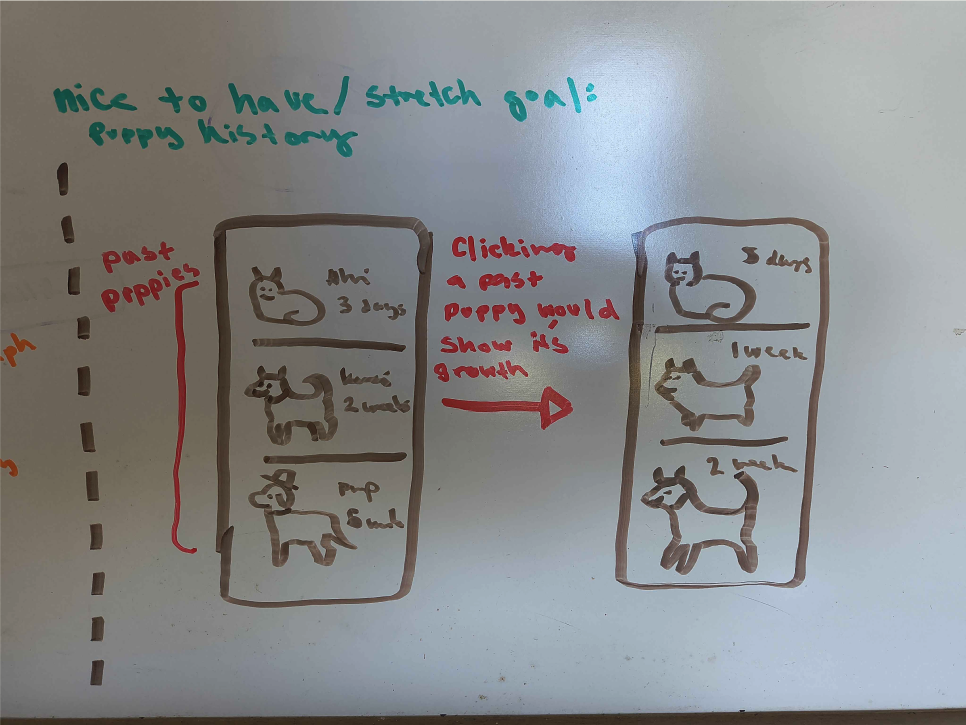 nice to have / stretch goal:
puppy history
past
puppies
3 days
2 weeks
pup
Clicking
a past
puppy would
show it's
growth
5 days
1 week
2 week